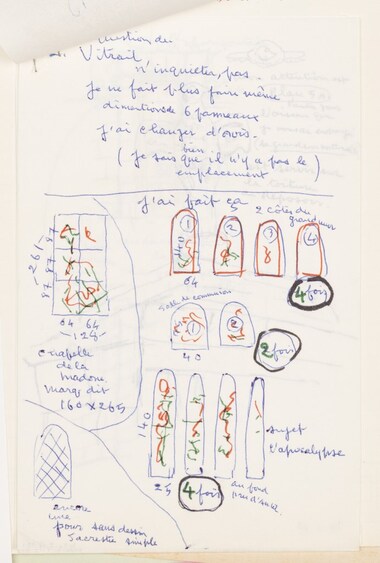 question de
Vitrail
n'inquieter, pas.
Je ne fait plus faire même
dimentions de 6 panneaux
j'ai changer d'avis.
bien
( Je sais que il n'y a pas le )
emplacement
j'ai fait ça
2 côtés du
1 2 3 4
64
4 fois
261
87 87 87
64 64
128
chapelle
de la
madone
marq dit
160 x 265
Salle de communion
1 2
40
2 fois
140
25
4 fois
au fond
sujet
l'apocalypse
encore
une
pour sans dessin
Sacrestie simple